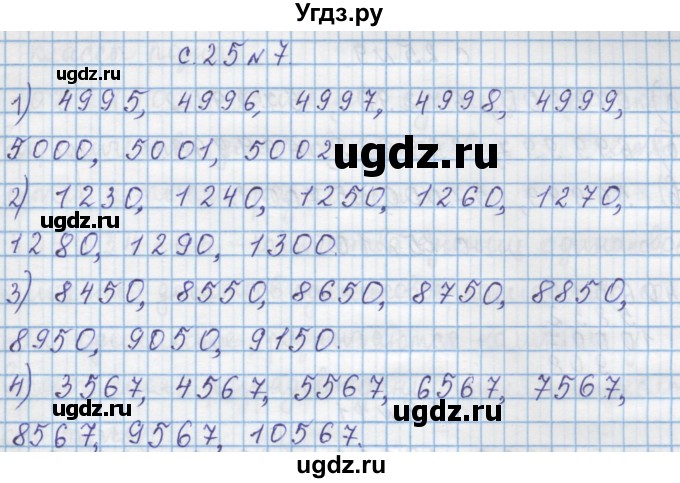 Угдз.ру
с.25 №7
ugdz.ru
1) 4995, 4996, 4997, 4998, 4999,
5000, 5001, 5002
ugdz.ru
2) 1230, 1240, 1250, 1260, 1270,
ugdz.ru
1280, 1290, 1300.
3) 8450, 8550, 8650, 8750, 8850,
8950, 9050, 9150.
4) 3567, 4567, 5567, 6567, 7567,
ugdz.ru
8567, 9567, 10567.
ugdz.ru
ugdz.ru